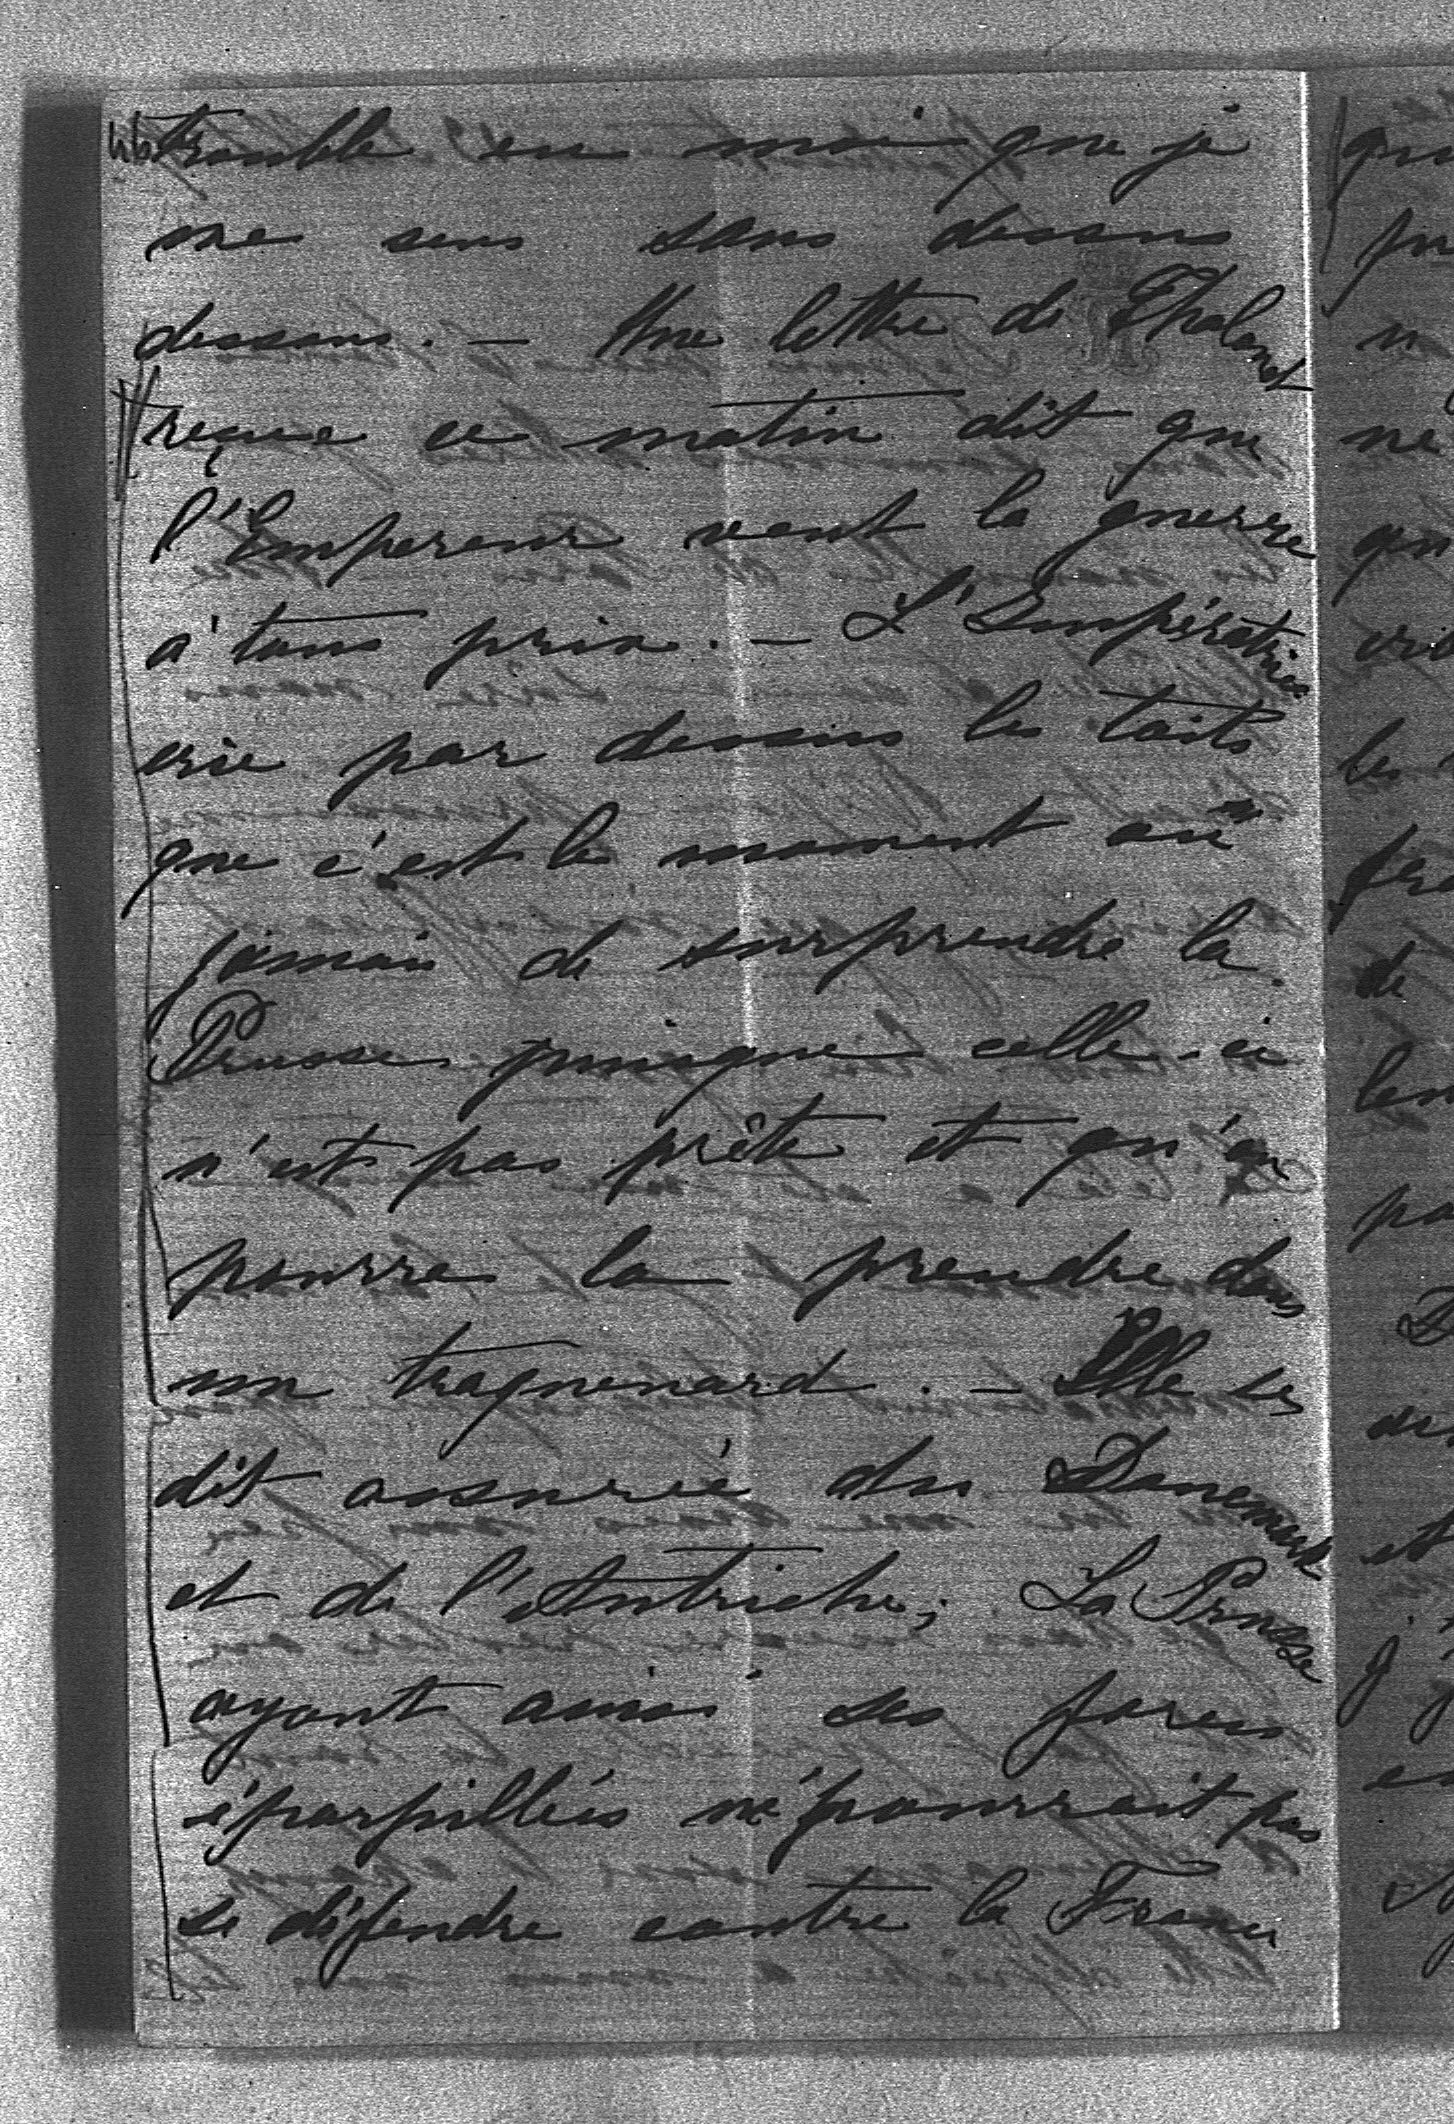 trouble en moi que je
me sens sans dessus
dessous. — Une lettre de
reçue ce matin dit que
l'Empereur veut la guerre
à tous prix. — L'Impératrice
crie par dessus les toits
que c'est le moment ou
jamais de surprendre la
Prusse puisque celle-ci
n'est pas prête et qu'on
pourra la prendre dans
un traquenard. — Elle se
dit assurée du Danemark
et de l'Autriche; La Prusse
ayant ainsi ses forces
éparpillées ne pourrait pas
se défendre contre la France